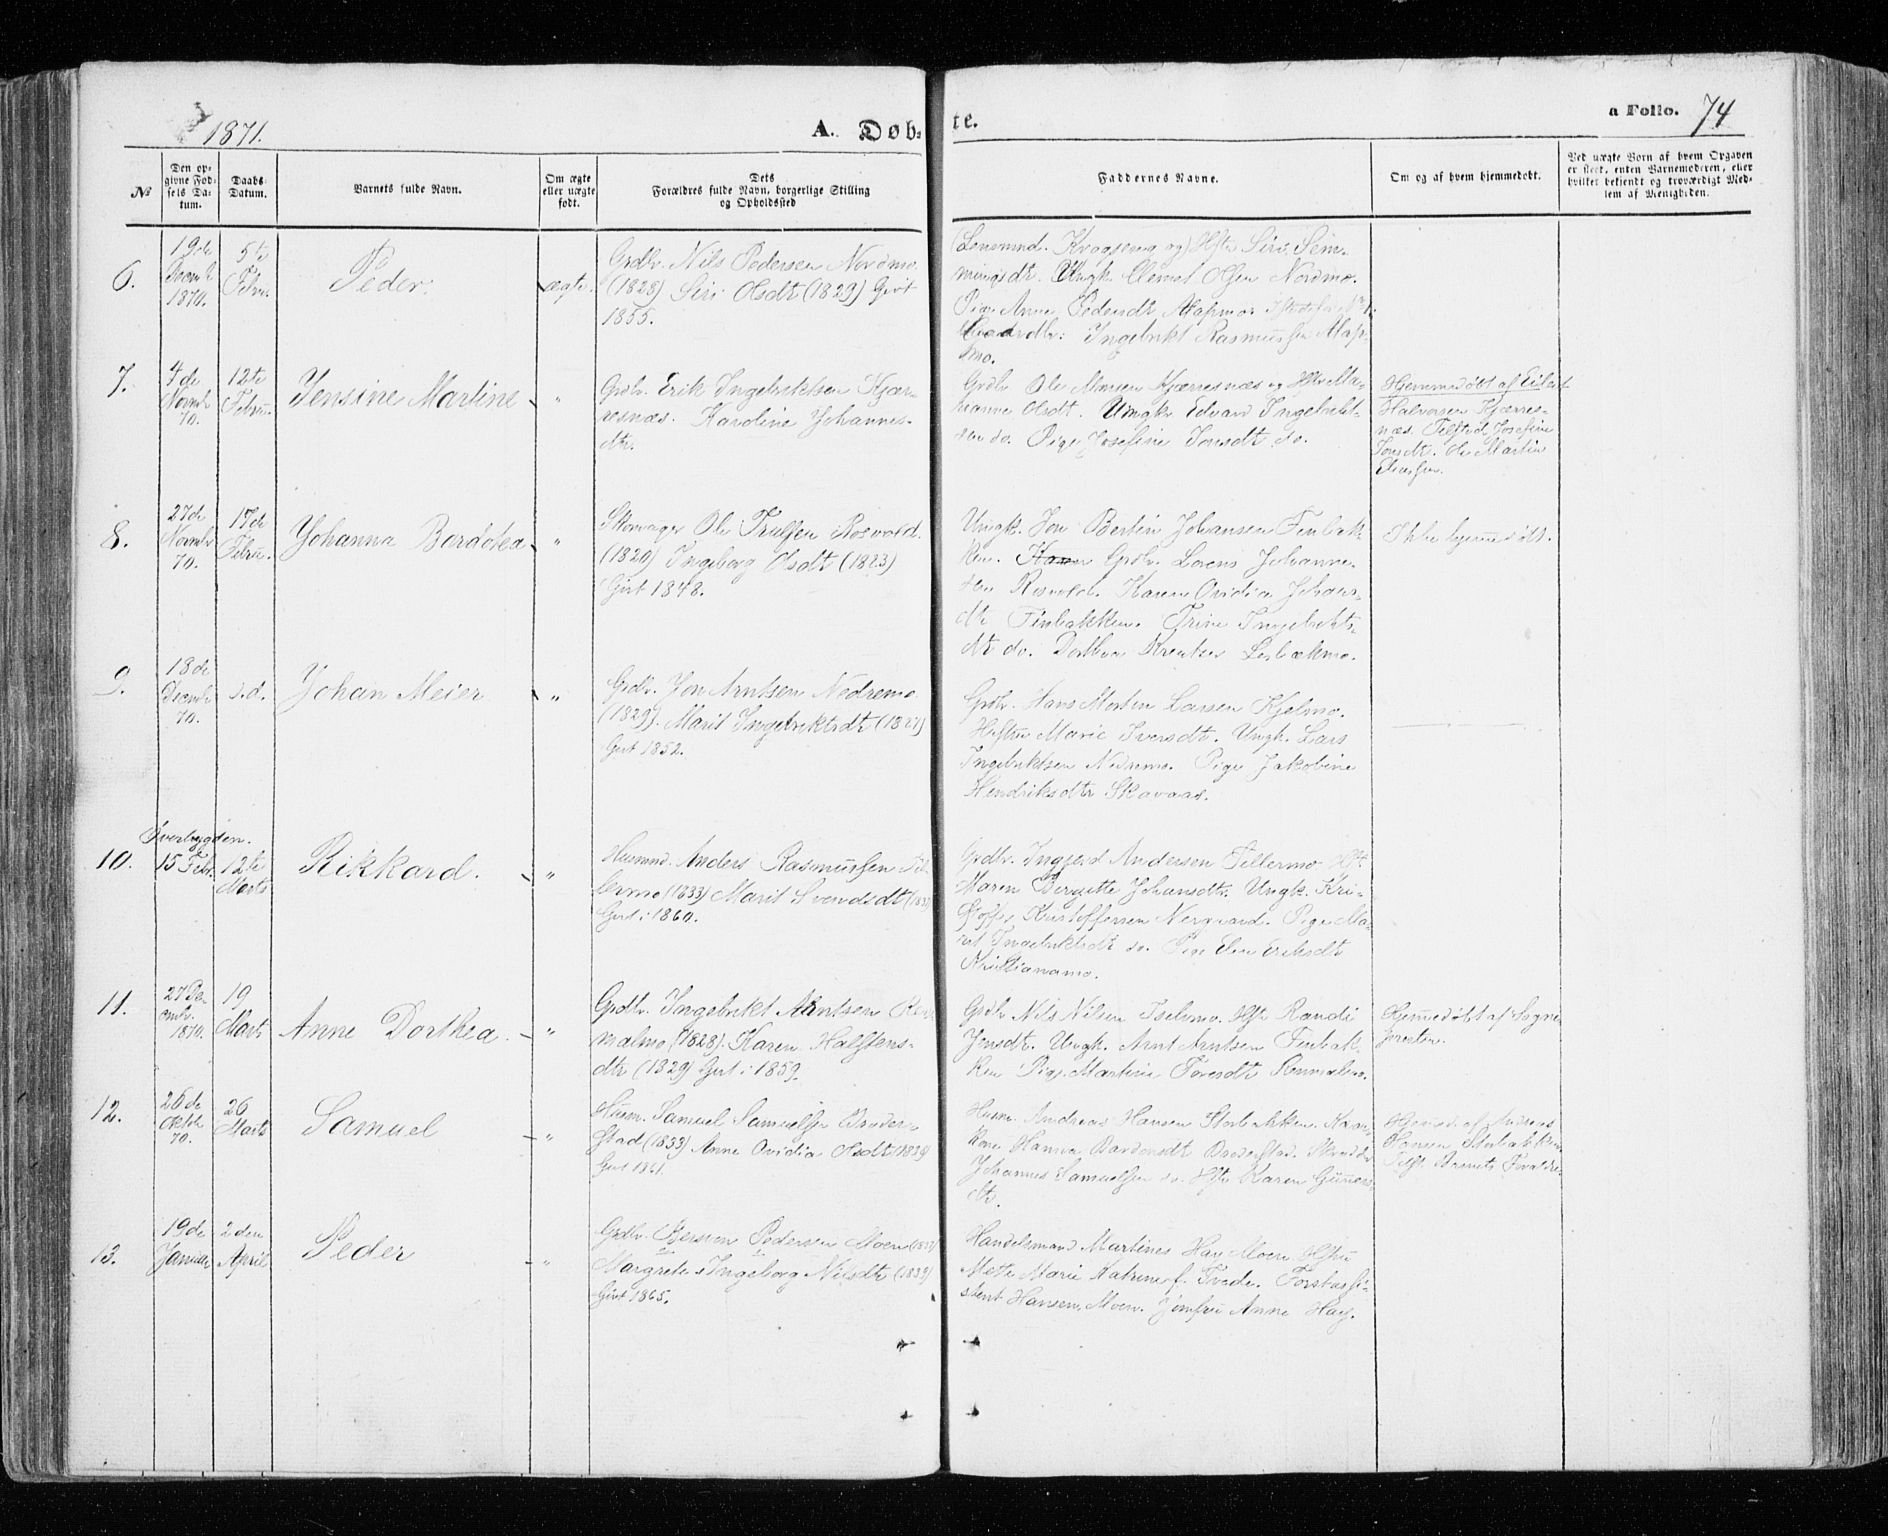 1871.
A. Døb-
te.
a Folio. 74
No
Den op-
givne Fød-
sels Da-
tum.
Daabs-
Datum.
Barnets fulde Navn.
Om ægte
eller uægte
født.
Dets
Forældres fulde Navn, borgerlige Stilling
og Opholdssted
Faddernes Navne.
Om og af hvem hjemmedøbt.
Ved uægte Børn af hvem Opgaven
er skeet, enten Barnemoderen, eller
hvilket bekjendt og troværdigt Med-
lem af Menigheden.
6.
19de
Decemb.
1870.
5te
Febru.
Peder.
ægte.
Grdbr. Nils Pedersen Nordmo
(1828) Siri Olsdt (1829) Givt
1855.
(Lensmnd. Krogseng og) Hstr Siri Sem-
mingsdt. Ungk. Clemet Olsen Nordmo.
Pige Anne Pedersdt
Gaardbr: Ingebrikt Rasmussen Alap-
mo.
7.
4de
Novmbr
70.
12te
Febru.
Jensine Martine
"
Grdbr. Erik Ingebriktsen Kjær-
resnæs. Karoline Johannes-
dtr.
Grdbr Ole Kjærresnæs og Hstr Ma-
rianne Olsdt. Ungkr Edvard Ingebrikt-
sen do. Pige Josefine Jonsdt do.
Hjemmedøbt af Eilert
Halvorsen Kjærres-
næs. Tilsted Josefine
Jonsdt. Ole Martin
8.
27de
Novmbr
70.
17de
Febru.
Johanna Bardokea
"
Skomager Ole Trulsen Rosvold.
(1820) Ingeborg Olsdt (1823)
Givt 1848.
Ungk. Jon Bertin Johansen Finbak-
ken. Grdbr. Lorens Johanne-
sen Rosvold. Karen Ovidia Johans-
dtr Finbakken. Trine Ingebrikts-
dtr do. Dorthea
Ikke hjemmedøbt.
9.
18de
Decmbr
70.
s.d.
Johan Meier
"
Grdbr. Jon Arntsen Nedremo
(1829). Marit Ingebriktsdt
Givt 1852.
Grdbr. Hans Morten Larsen Kjelmo.
Hustru Marie Iversdt. Ungk. Lars
Ingebriktsen Nedremo. Pige Jakobine
Hendriksdtr Skavaas.
Øverbygden.
10.
15 Febr.
12te
Marts
Rikkard.
"
Husmnd. Anders Rasmussen
(1833) Marit Svendsdt
Givt i 1860.
Grdbr. Andersen Fellermo Hst.
Maren Birgitte Johansdtr. Ungk. Kri-
stoffer Kristoffersen Nergaard. Pige Ma-
rit Ingebriktsdt do. Pige Elen Eriksdt
Kristianamo.
11.
27 De-
cembr.
1870.
19
Marts
Anne Dorthea.
"
Grdbr. Ingebrikt Arntsen
malmo (1828). Karen Halstens-
dtr (1829) Givt i 1859.
Grdbr Nils Nilsen Iselvmo. Hstr Randi
Jensdt. Ungk. Arnt Arntsen Finbak-
ken Pige Martine Toresdt Rønmalmo.
Hjemmedøbt af Sogne-
presten.
12.
26de
Oktbr
70.
26
Marts
Samuel
"
Husm. Samuel Samuelsen Brøder-
stad (1833) Anne Ovidia Olsdt (1839)
Givt 1861.
Husm. Andreas Hansen Storbakken.
Hanna Bardonsdt Brøderstad. Skrædder
Johannes Samuelsen do. Hstr Karen Gunners-
dtr.
Hjemmed. af Andreas
Hansen Storbakken
Tilst. Barnets Forældre
13.
19de
Januar
2den
April
Peder
"
Grdbr. Bersvon Pedersen Moen
Margrete Ingeborg Nilsdt (1833)
Givt 1865.
Handelsmand Martines Hay Moen Hstru
Mette Marie Katrine f. Tvede. Forstassi-
stent Hansen, Moen. Jomfru Anne Hay.